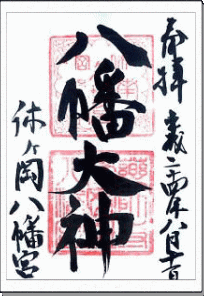 奉拝
平成二四年八月十一日
八幡大神
休ヶ岡八幡宮